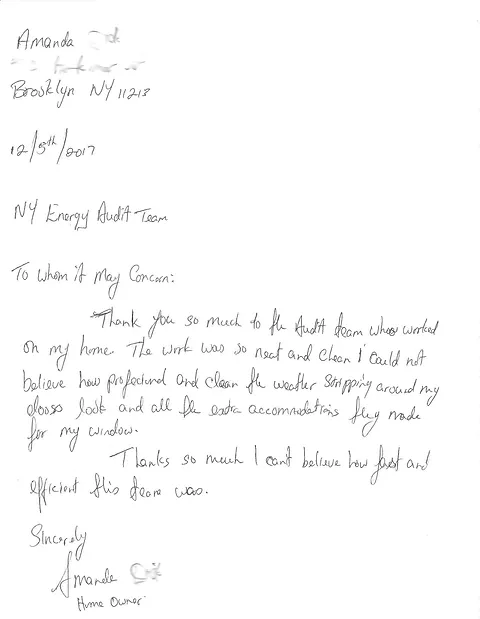 Amanda
Brooklyn NY 11213
12/5th/2017
NY Energy Audit Team
To Whom it May Concern:
Thank you so much to the Audit team who worked
on my home. The work was so neat and clean I could not
believe how profectional and clean the weather stripping around my
doors look and all the extra accommodations they made
for my window.
Thanks so much I can't believe how fast and
efficient this team was.
Sincerely
Amanda
Home Owner